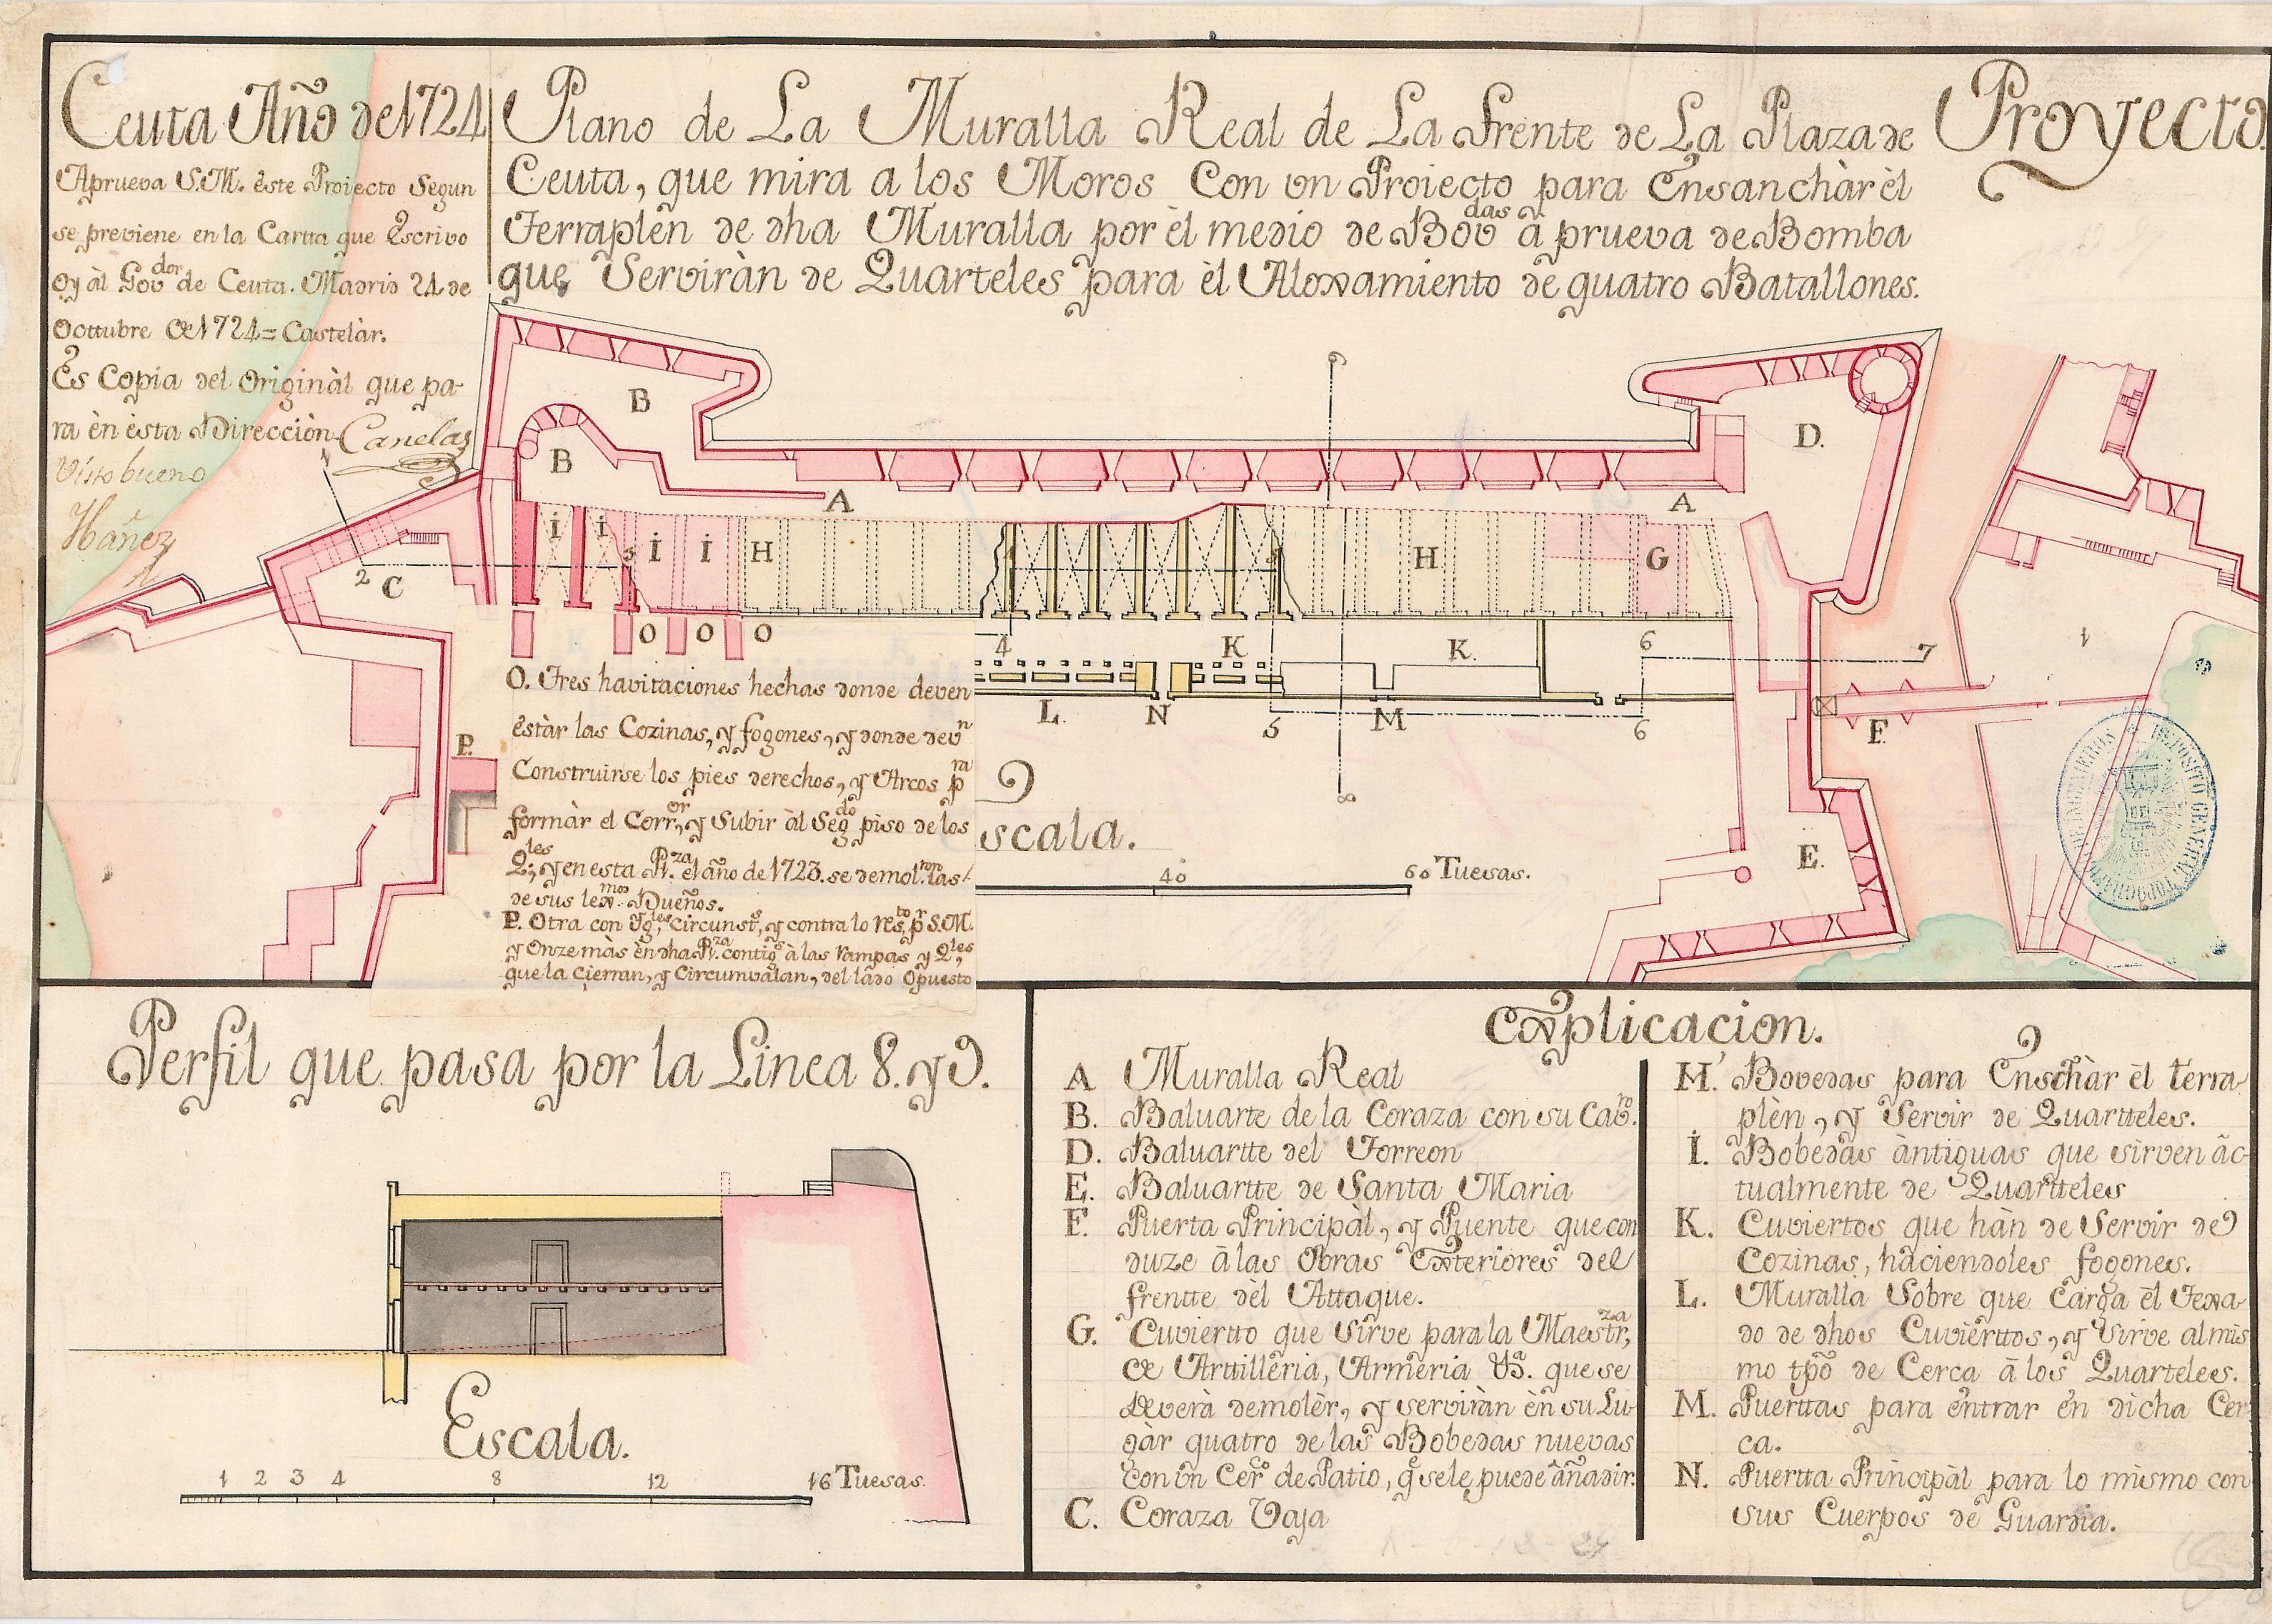 Ceuta Año de 1724
Aprueva S.M. èste Proiecto Segun
se previene en la Cartta que Escrivo
oy àl Gov.dor de Ceuta. Madrid 24 de
Octtubre de 1724= Castelàr.
Es Copia del Originàl que pa-
ra èn èsta Direcciòn Canelas
Visto bueno
Ibáñez
Plano de La Muralla Real de La Frente de La Plaza de
Ceuta, que mira a los Moros Con un Proiecto para Ensanchàr èl
Terraplèn de dha Muralla por èl medio de Bovdas à prueva de Bomba
que Serviràn de Quarteles para èl Aloxamiento de quatro Batallones.
Proyecto.
B
B
D.
A
A
1
2
C
İ
İ
İ
İ
H
H
G
3
3
O
O
O
4
K
K.
6
7
1
L.
N
5
M
6
F
P.
E.
9
8
O. Tres havitaciones hechas donde deven
èstàr las Cozinas, y fogones, y donde devn
Construirse los pies derechos, y Arcos pra
formàr el Corror, y Subir àl Segdo piso de los
Qles, y en esta Pza el año de 1723. se demolron las
de sus lexmos Dueños.
P. Otra con Ygles circunsts, y contra lo resto pr S.M.
y Onze màs èn dha Pza contigs à las rampas y Qles
que la cierran, y Circumvalan, del lado Opuesto
scala.
40
60 Tuesas.
DEPOSITO GENERAL TOPOGRAFICO DE INGENIEROS
Perfil que pasa por la Linea 8. y 9.
Escala.
1 2 3 4 8 12 16 Tuesas.
Explicacion.
A Muralla Real
B. Baluarte de la Coraza con su Cabro.
D. Baluartte del Torreon
E. Baluartte de Santa Maria
F. Puerta Principàl, y Puente que con
duze à las Obras Exteriores del
frentte dèl Attaque.
G. Cuviertto que Sirve para la Maestrza,
de Arttilleria, Armeria &a. que se
deverà demolèr, y serviràn èn su Lu
gar quatro de las Bobedas nuevas
con ùn Cero de Patio, q se le puede àñadir.
C. Coraza Vaja
H. Bovedas para Enschàr èl terra-
plèn, y Servir de Quartteles.
İ. Bobedas àntiguas que sirven àc-
tualmente de Quartteles
K. Cuviertos que hàn de Servir de
Cozinas, haciendoles fogones.
L. Muralla Sobre que Carga èl Texa-
do de dhos Cuvierttos, y Sirve al mis
mo tpo de Cerca à los Quarteles.
M. Puerttas para èntrar èn dicha Cer
ca.
N. Puertta Principàl para lo mismo con
sus Cuerpos de Guardia.